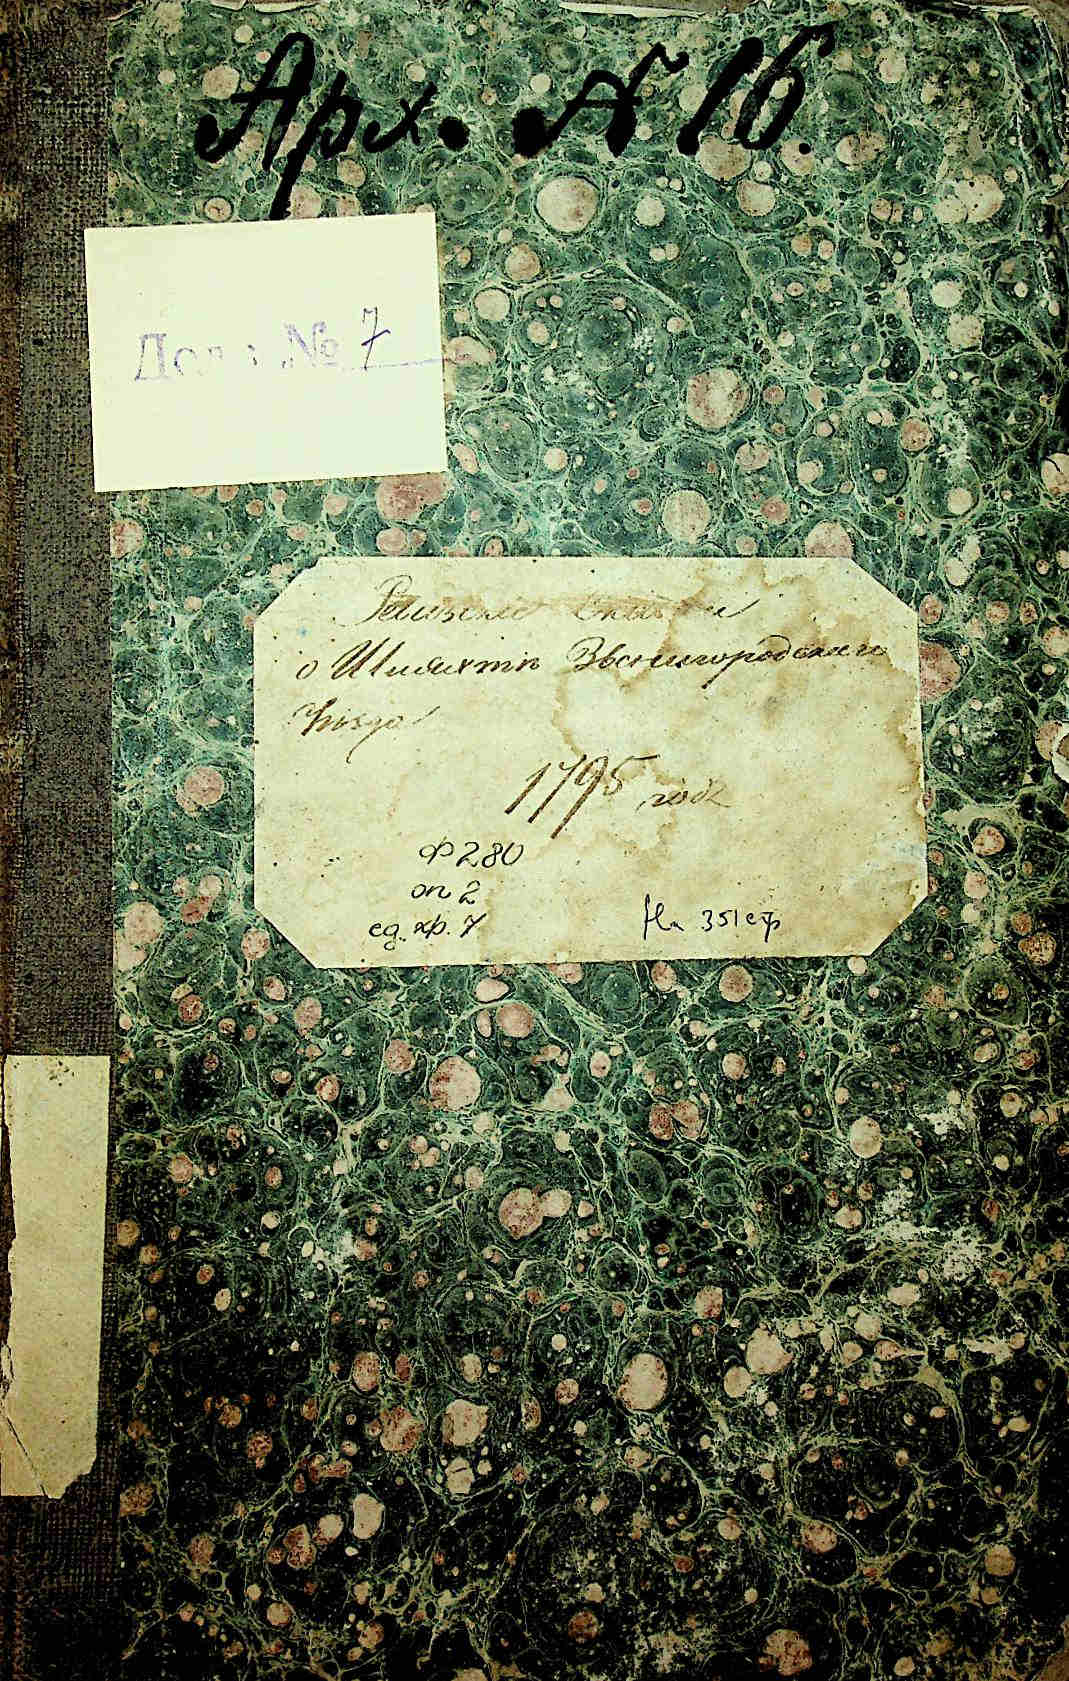 Арх. № 16.
Дело № 7
Ревизские сказки
о Шляхтѣ Звенигородскаго
Уѣзда
1795 года
Ф 280
оп 2
ед. хр. 7
На 351 стр